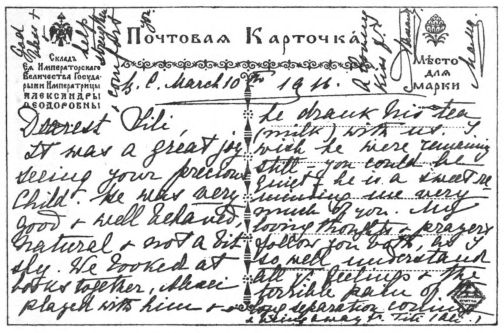 God
bless &
help
& comfort
you.
Почтовая Карточка
Складъ
Ея Императорскаго
Величества Госуда-
рыни Императрицы
Александры
Ѳеодоровны
Мѣсто
для
марки
A loving
kiss fr.
March 10th 1916.
Dearest Lili
It was a great joy
seeing your precious
child. He was very
good & well behaved
natural & not a bit
shy. We looked at
books together, Alexei
played with him &
he drank his tea
(milk) with us. I
wish he were remaining
still – you could be
quiet, he is a sweet re
minding me very
much of you. My
loving thoughts & prayers
follow you both, as I
so well understand
all yr. feelings & the
horrible pain of
long separation coming
& being away fr. Titi